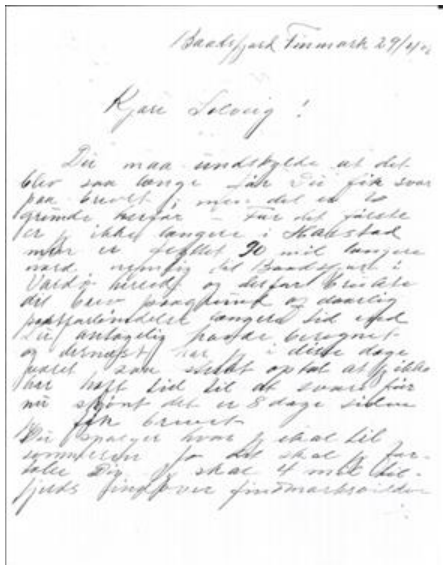 Baadsfjord Finmark 29/4
Kjære Solveig!
Du maa undskylde at det
blev saa længe før Du fik svar
paa brevet, men det er to
grunde herfor – For det første
er jeg ikke længere i Harstad
men er flyttet 90 mil længere
nord, nemlig til Baadsfjord i
Vardø herred og derfor brukte
dit brev paa grund af daarlig
postforbindelse længere tid end
Du antagelig havde beregnet
og dernæst har jeg i disse dage
været saa optat at jeg ikke
har haft tid til at svare før
nu skjønt det er 8 dage siden
jeg fik brevet
Du spørger hvor jeg skal til
sommeren jo det skal jeg for-
tælle Dig jeg skal 4 mil til-
fjelds ind over finmarksvidden